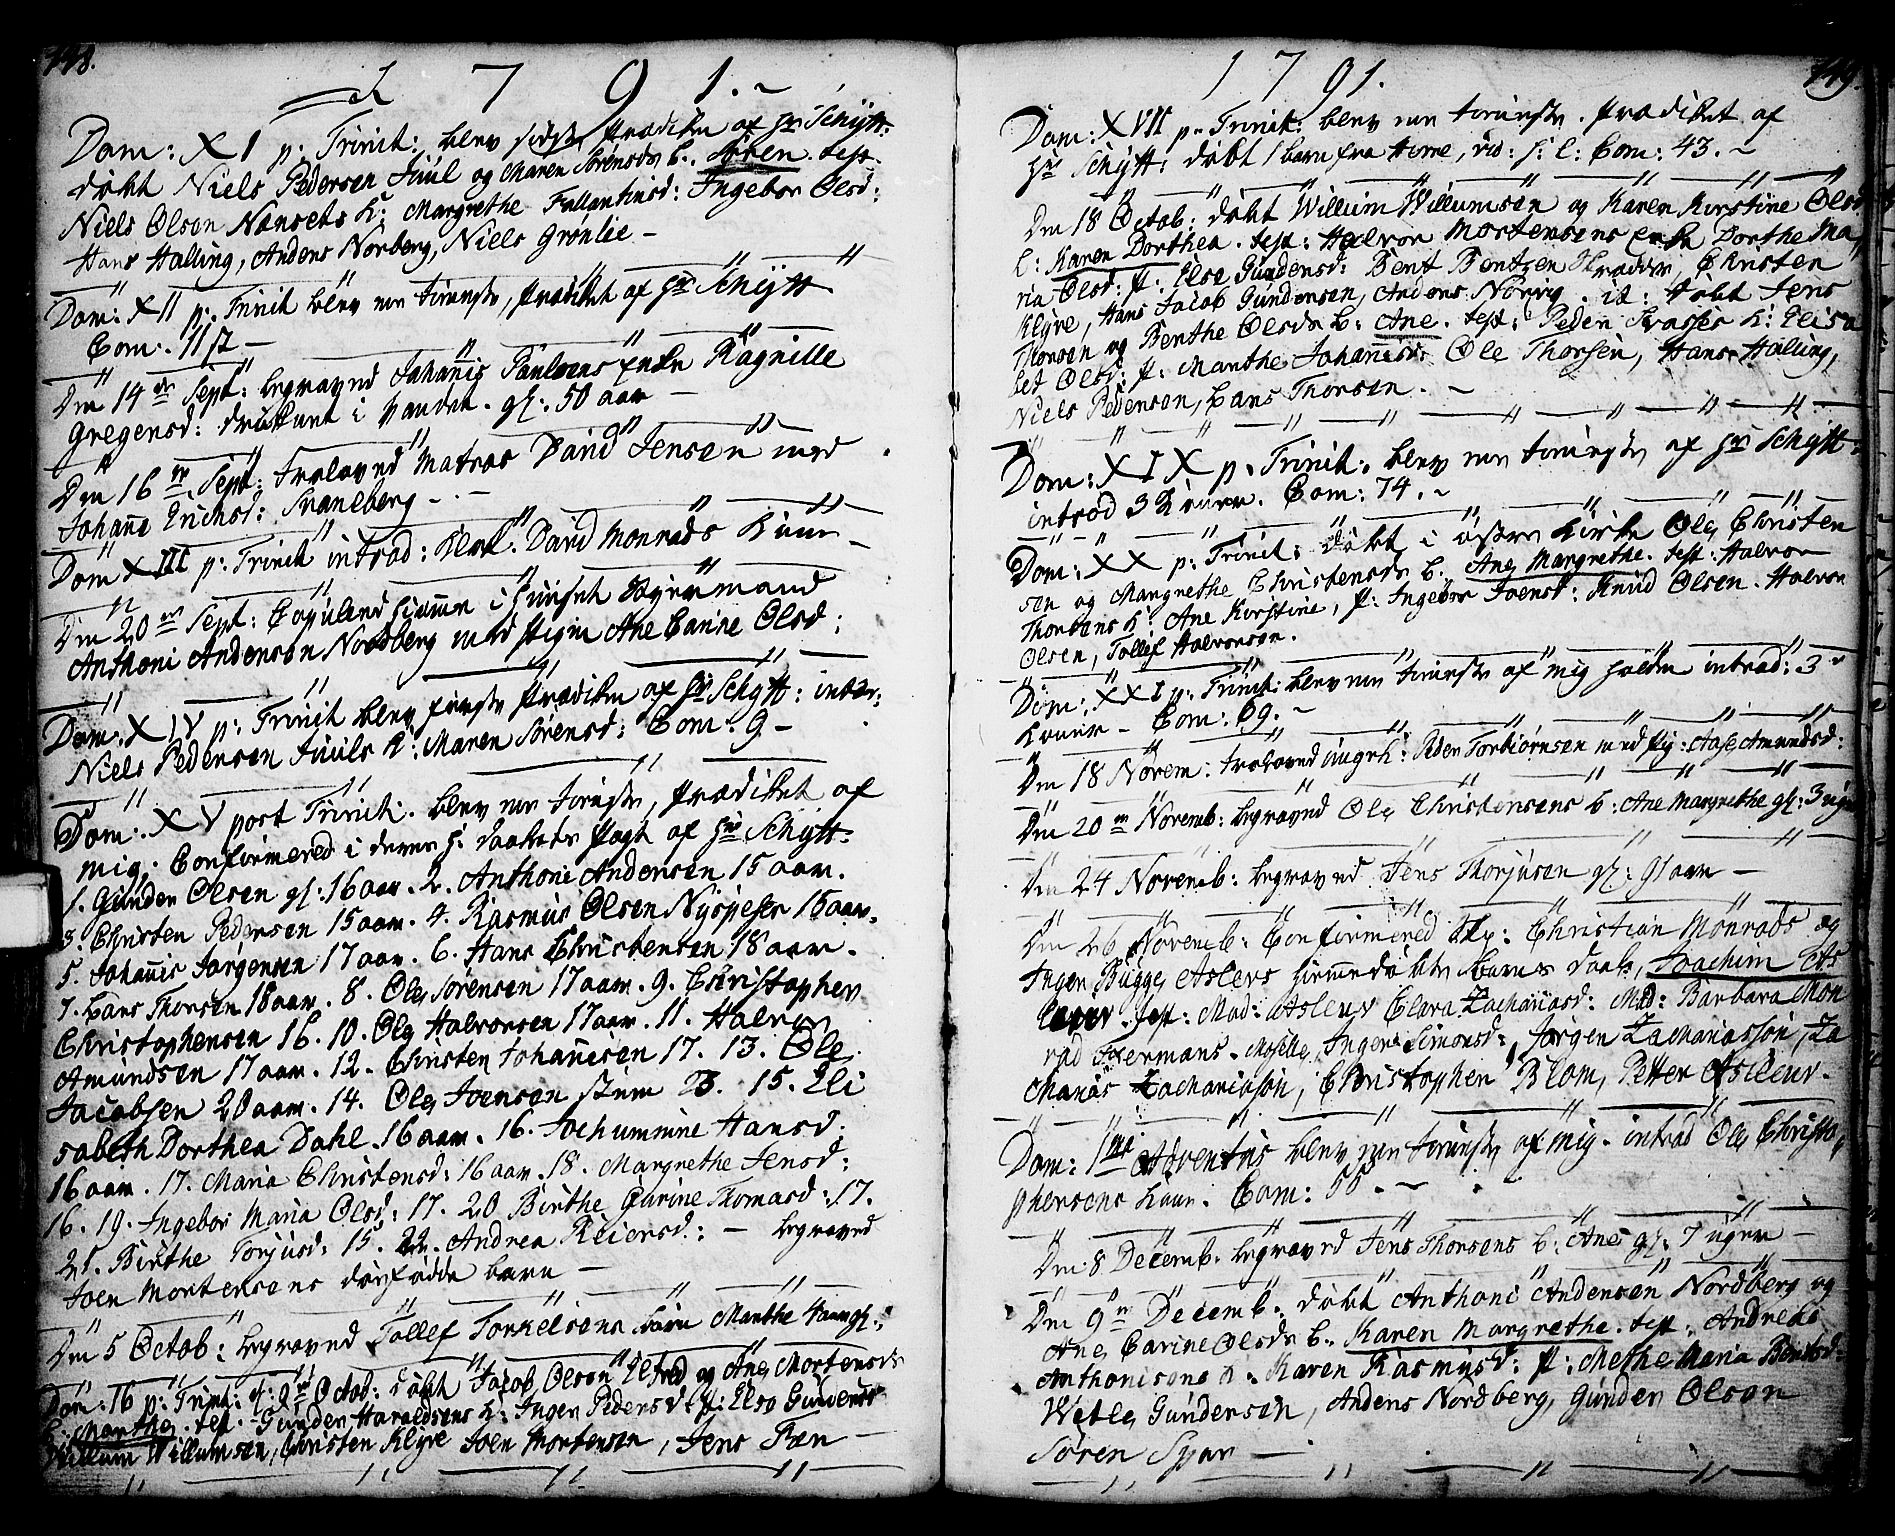 148.
1 7 9 1.
Dom: XI p: Trinit: blev sidste Prædiken af Hr Schytt:
døbt Niels Pedersen Juul og Maren Sørensdr b. Søren. test.
Niels Olsen Nansets K: Margrethe Fallantinsd: Ingebor Olsd:
Hans Halling, Anders Norberg, Niels Grønlie -
Dom: XII p: Trinit blev en tieniste, Prædiket af Hr Schytt
Com. 11 st -
Den 14de Sept: begraved Johanis Paulsens Enke Ragnille
Gregersd: druknt i Vandet. gl: 50 aar -
Den 16de Sept: Troloved Matros David Jensen med
Johane Erichsd: Traneberg -
Dom XIII p: Trinit introd: Klok. David Monrads Kone -
Den 20de Sept: Copulered hiemme i Huuset Styrmand
Anthoni Andersen Nordberg med Pigen Ane Carine Olsd:
Dom: XIV p: Trinit blev første Prædiken af Hr Schytt: introd:
Niels Pedersen Juuls K: Maren Sørensd: Com: 9 -
Dom: XV port Trinit: blev en tieniste, Prædiket af
mig; Confirmered i deres h: daabes Pagt af Hr Schytt:
1. Gunder Olsen gl: 16 aar. 2. Anthoni Andersen 15 aar.
3. Christen Pedersen 15 aar. 4. Rasmus Olsen Nyspeser 15 aar.
5. Johanis Jørgensen 17 aar. 6. Hans Christensen 18 aar.
7. Lars Thorsen 18 aar. 8. Ole Sørensen 17 aar. 9. Christopher
Christophersen 16. 10. Ole Halvorsen 17 aar. 11. Halvor
Amundsen 17 aar. 12. Christen Johanisen 17. 13. Ole
Jacobsen 20 aar. 14. Ole Joensen stum 23. 15. Eli
sabeth Dorthea Dahl. 16 aar. 16. Jochummine Hansd:
16 aar. 17. Maria Christensd: 16 aar. 18. Margrethe Jensd:
16. 19. Ingebor Maria Olsd: 17. 20 Birthe Carine Thomasd: 17.
21. Birthe Torjusd: 15. 22. Andrea Reiersd: - begraved
Joen Mortensens dødfødde barn -
Den 5 Octob: begraved Tollef Torkelsens barn Marthe 4 aar gl:
Dom: 16 p: Trinit: d: 9de Octob: døbt Jacob Olsen Elsrød og Ane Mortensdr
b: Marthe. test. Gunder Haraldsens K: Inger Pedersd. P: Else Gundersd
Willum Willumsen, Christen Klyve Joen Mortensen, Jens Fæn -
149.
1 7 9 1.
Dom: XVII p. Trinit: blev en tieniste. Prædiket af
Hr Schytt: døbt 1 barn fra Horre, vid: h: l: Com: 43. -
Den 18 Octob: døbt Willum Willumsen og Karen Kirstine Olsd
b: Karen Dorthea. test: Halvor Mortensens Enke Dorthe Ma
ria Olsd: P: Else Gundersd: Bent Bentzen Skræder, Christen
Klyve, Hans Jacob Gundersen, Anders Norvig. it: døbt Jens
Thorsen og Benthe Olsdr b: Ane. test: Peder Krasses K: Elisa
bet Olsd: P: Marthe Johannesd: Ole Thorsen, Hans Halling,
Niels Pedersen, Lars Thorsen. -
Dom: XIX p. Trinit: blev en tieniste af Hr Schytt:
introd 3 Koner. Com: 74. -
Dom: XX p: Trinit: døbt i østre Kirke Ole Christen
sen og Margrethe Christensdr b. Ane Margrethe. test: Halvor
Thorsens K: Ane Kirstine, P: Ingebor Joensd: Knud Olsen. Halvor
Olsen, Tollef Halvorsen.
Dom: XXI p: Trinit: blev en tieniste af mig holden introd: 3
Koner - Com: 69. -
Den 18 Novem: troloved ungk: Peder Torbiørnsen med Pig: Aase Amundsd:
Den 20de Novemb: begraved Ole Christensens b: Ane Margrethe gl: 3 uger
Den 24 Novemb: begraved Jens Thorjusen gl: 91 aar -
Den 26 Novemb: Confirmered Skp: Christian Monrads og
Inger Bugge Aslevs hiemmedøbte barns daab, Joachim As
lever. test: Mad: Aslevs Clara Zachariasd: Mad: Barbara Mon
rad Feermans. Moselle Inger Simonsd: Jørgen Zachariassøn, Za
charias Zachariasøn, Christopher Blom, Petter Aslevr.
Dom: 1mi Adventus blev en tieniste af mig. introd Ole Christo
phersens Kone. Com: 55. -
Den 8 Decemb: begraved Jens Thorsens b: Ane gl: 7 uger -
Den 9de Decemb. døbt Anthoni Andersen Nordberg og
Ane Carine Olsdr b. Karen Margrethe. test: Andreas
Anthonisens K. Karen Rasmusd: P: Methe Maria Bentsd:
Wetle Gundersen, Anders Nordberg, Gunder Olsen
Søren Spær -